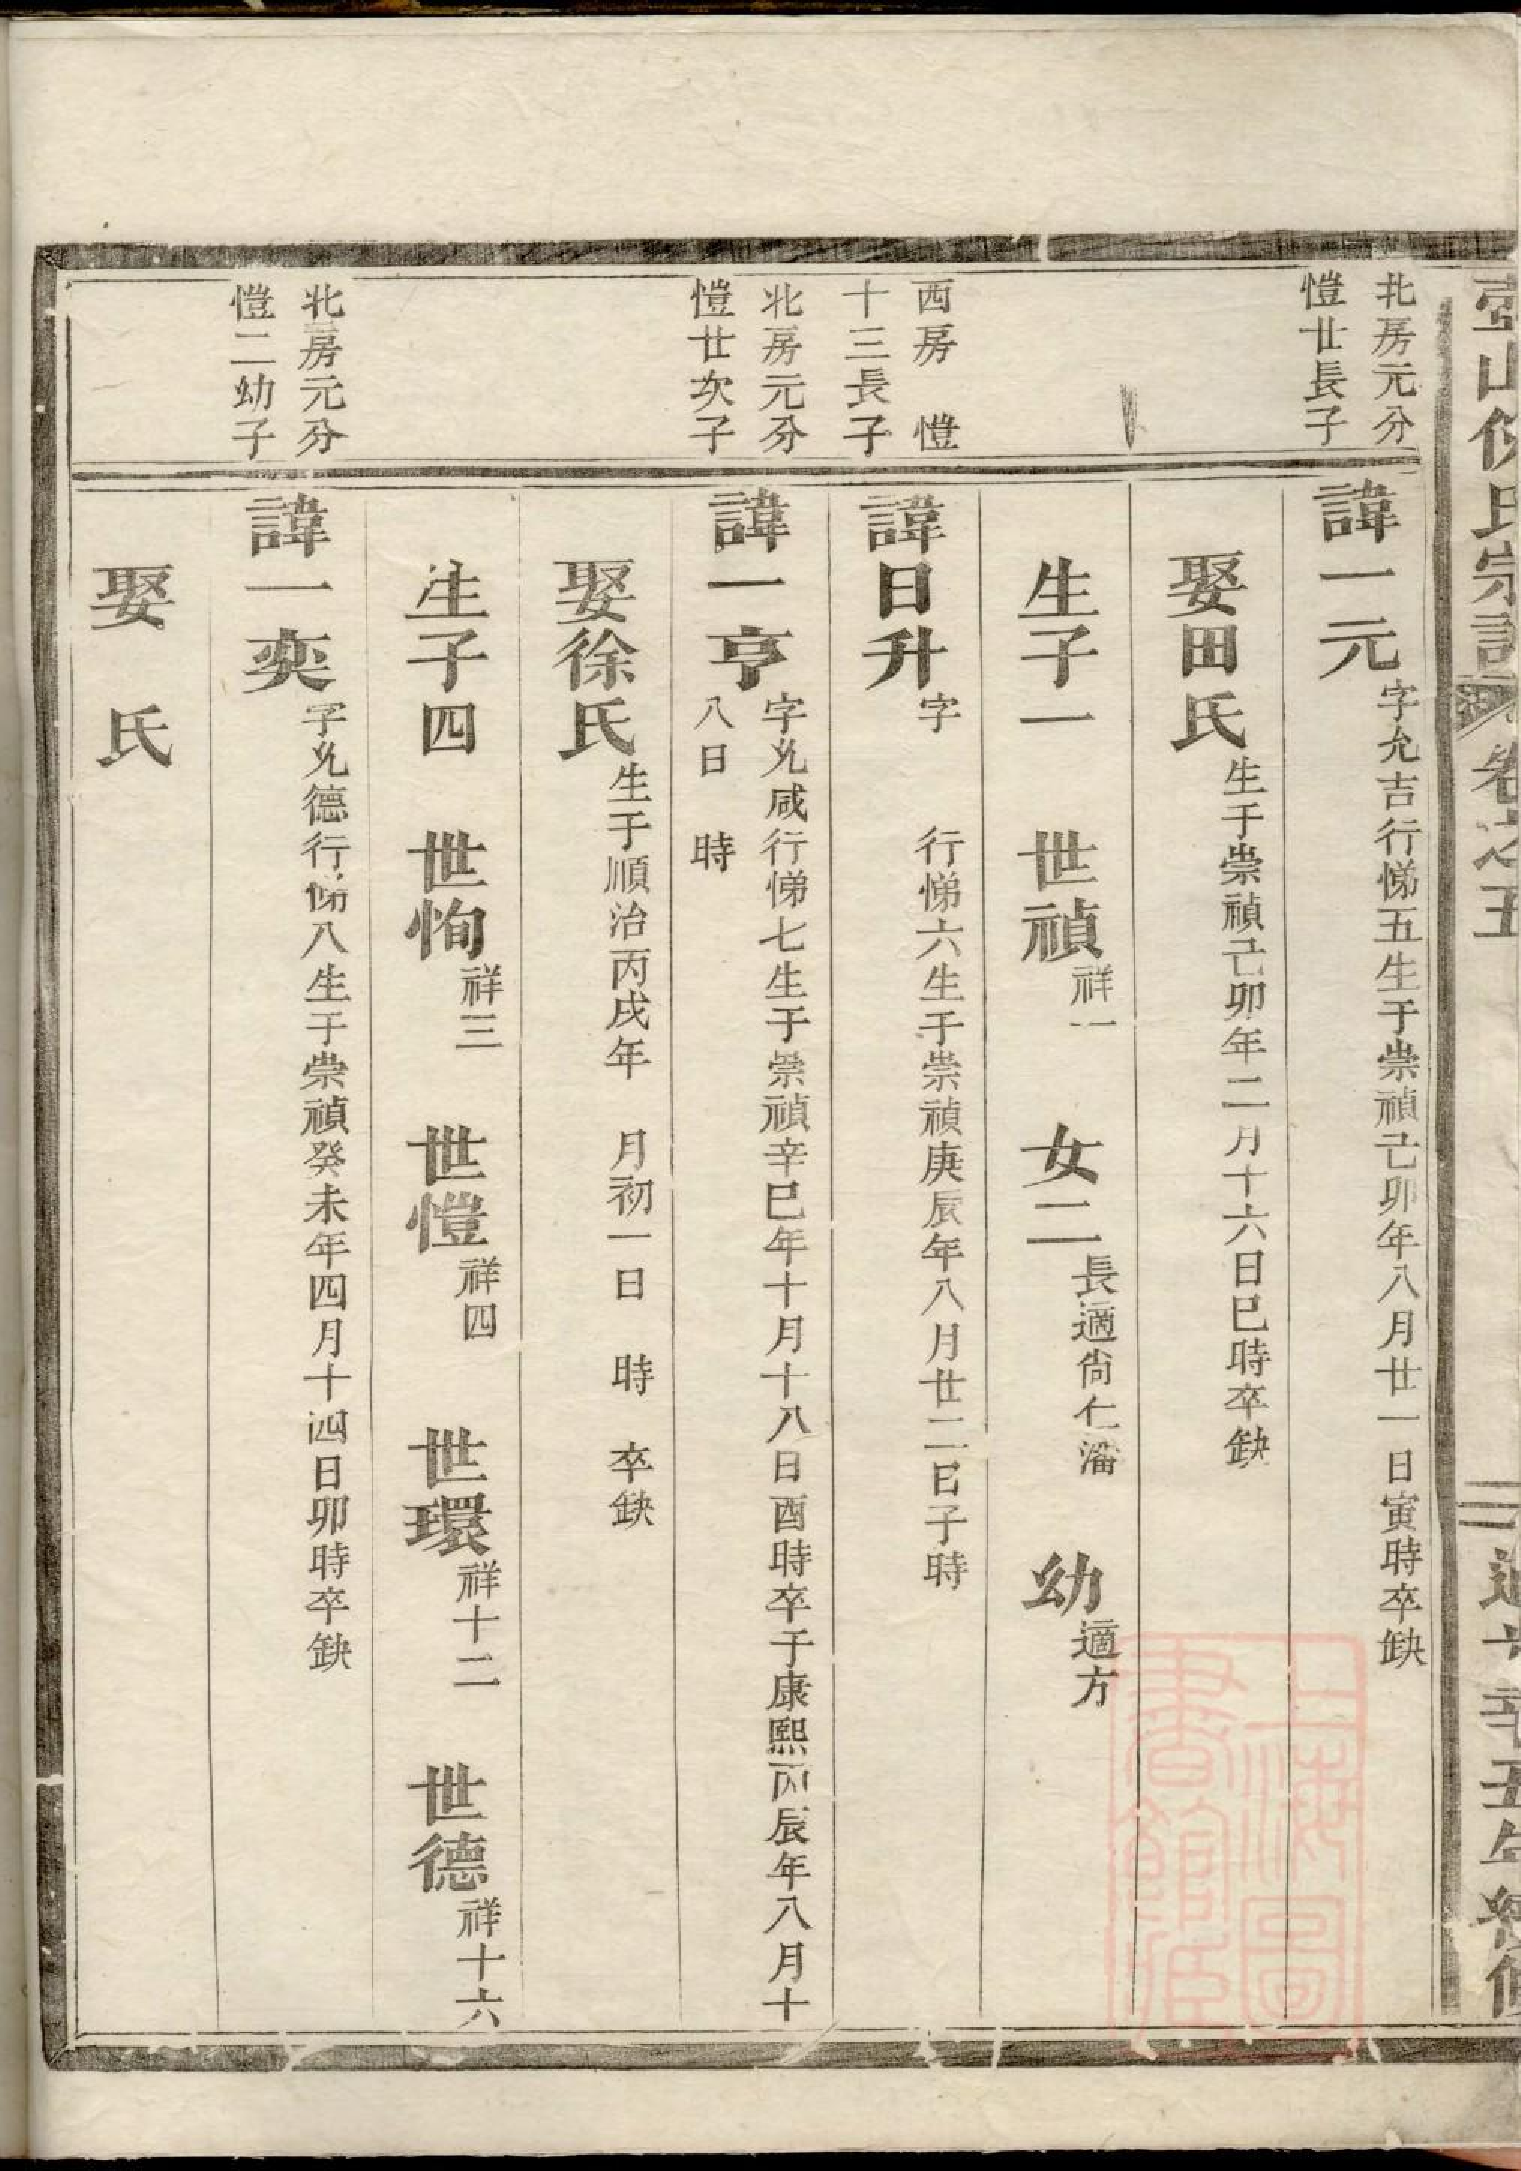 北房元分
愷廿長子
諱一元字允吉行悌五生于崇禎己卯年八月廿一日寅時卒缺
娶田氏生于崇禎己卯年二月十六日巳時卒缺
生子一 世禎祥一 女二長適尚仁潘 幼適方
西房 愷
十三長子
諱日升字 行悌六生于崇禎庚辰年八月廿二日子時
北房元分
愷廿次子
諱一亨字允咸行悌七生于崇禎辛巳年十月十八日酉時卒于康熙丙辰年八月十
八日 時
娶徐氏生于順治丙戌年 月初一日 時 卒缺
生子四 世恂祥三 世愷祥四 世環祥十二 世德祥十六
北房元分
愷二幼子
諱一奕字允德行悌八生于崇禎癸未年四月十四日卯時卒缺
娶 氏
卷之五
上海圖
書館藏